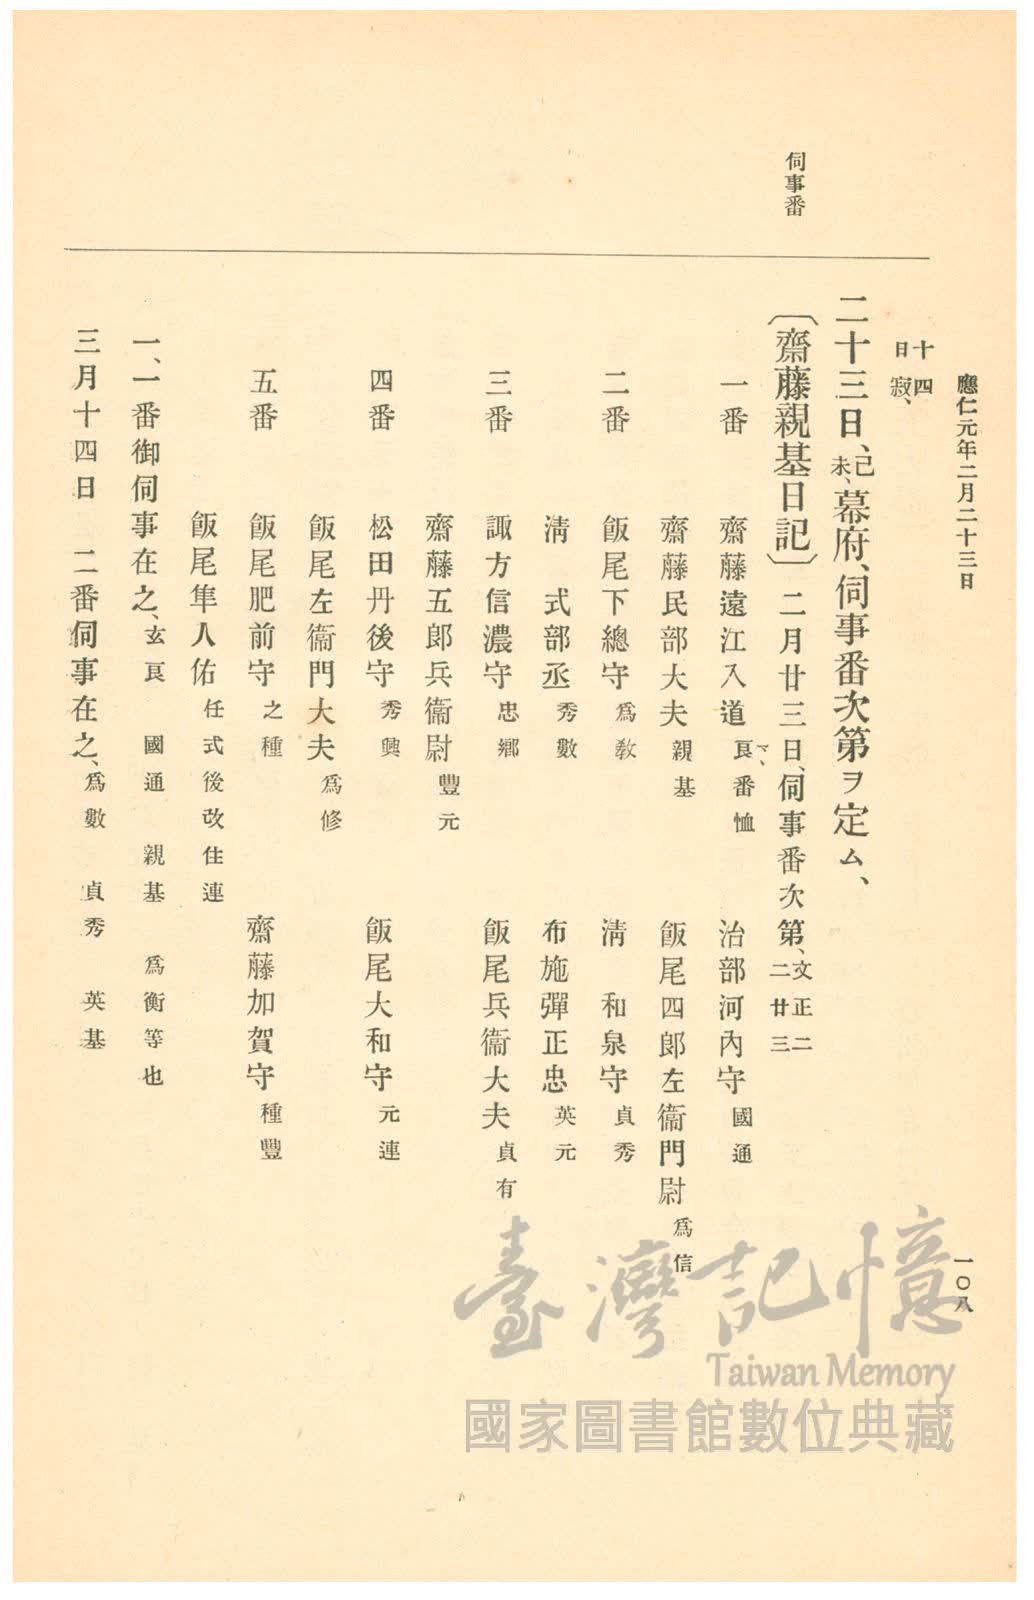 應仁元年二月二十三日
一〇八
十四日寂、
伺事番
二十三日、己未、幕府、伺事番次第ヲ定ム、
〔齋藤親基日記〕二月廿三日、伺事番次第、文正二二廿三
一番 齋藤遠江入道 良番恤 マ、 治部河內守 國通
齋藤民部大夫 親基 飯尾四郎左衞門尉 爲信
二番 飯尾下總守 爲敎 淸 和泉守 貞秀
淸 式部丞 秀數 布施彈正忠 英元
三番 諏方信濃守 忠鄕 飯尾兵衞大夫 貞有
齋藤五郎兵衞尉 豐元
四番 松田丹後守 秀興 飯尾大和守 元連
飯尾左衞門大夫 爲修
五番 飯尾肥前守 之種 齋藤加賀守 種豐
飯尾隼人佑 任式後改任連
一、一番御伺事在之、玄良 國通 親基 爲衡等也
三月十四日 二番伺事在之、爲數 貞秀 英基
臺灣記憶
Taiwan Memory
國家圖書館數位典藏